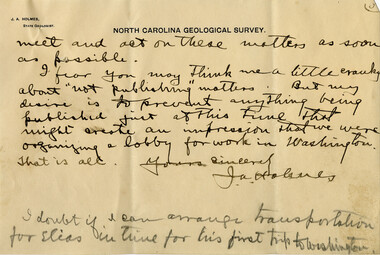 J. A. HOLMES,
STATE GEOLOGIST.
NORTH CAROLINA GEOLOGICAL SURVEY.
meet and act on these matters as soon
as possible.
I fear you may think me a little cranky
about "not publishing" matters. But my
desire is to prevent anything being
published just at this time that
might create an impression that we were
organizing a lobby for work in Washington.
That is all. Yours sincerely
J. A. Holmes
I doubt if I can arrange transportation
for Elias in time for his first trip to Washington.